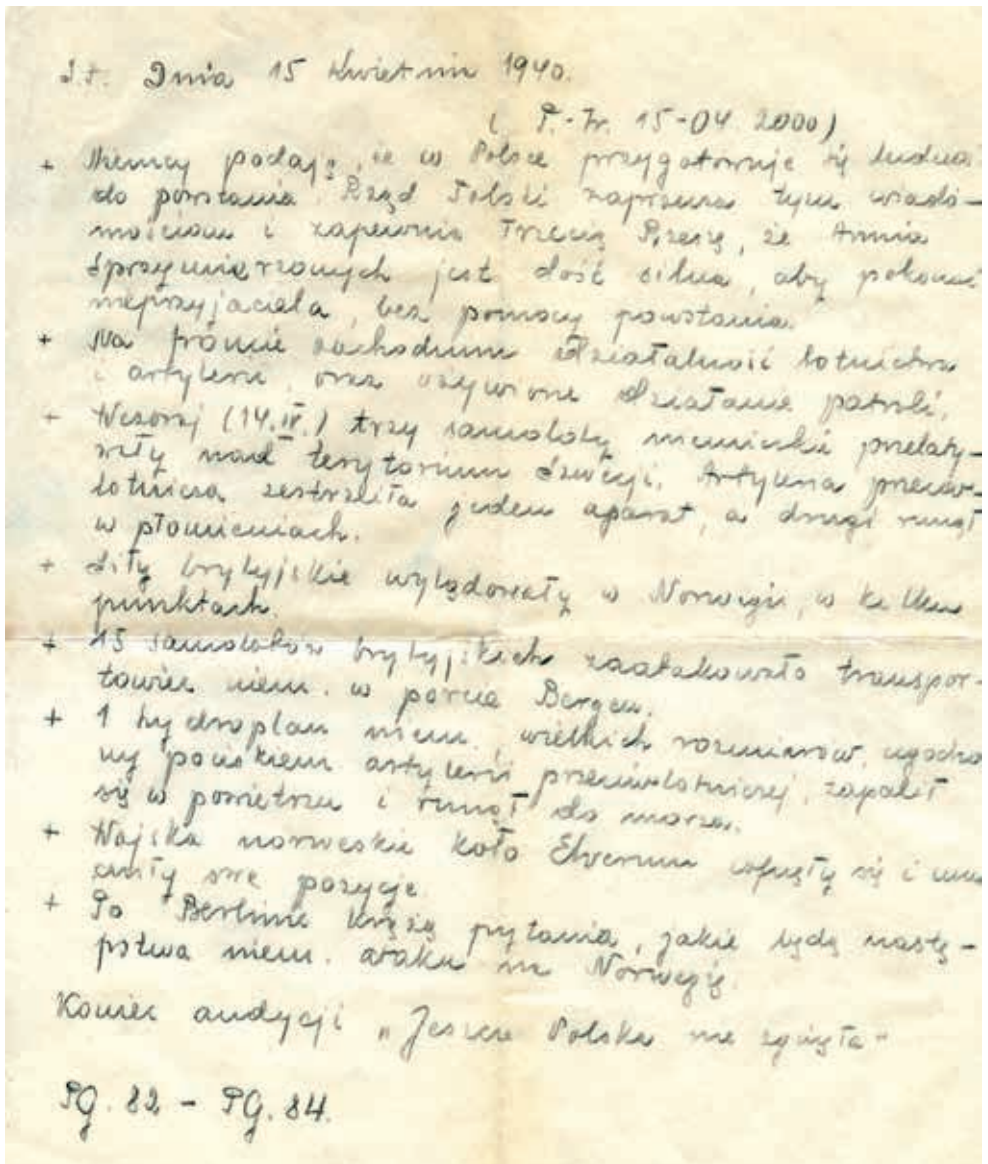 Dnia 15 Kwietnia 1940.
( P.-Tr. 15-04. 2000)
+ Niemcy podają, że w Polsce przygotowuje się ludność
do powstania. Rząd Polski zaprzecza tym wiado-
mościom i zapewnia Trzecią Rzeszę, że Armia
Sprzymierzonych jest dość silna, aby pokonać
nieprzyjaciela, bez pomocy powstania.
+ Na froncie zachodnim działalność lotnictwa
i artylerii, oraz ożywione działanie patroli.
+ Wczoraj (14.IV.) trzy samoloty niemieckie przelaty-
wały nad terytorium Szwecji. Artyleria przeciw-
lotnicza zestrzeliła jeden aparat, a drugi runął
w płomieniach.
+ Siły brytyjskie wylądowały w Norwegii, w kilku
punktach.
+ 15 samolotów brytyjskich zaatakowało transpor-
towiec niem. w porcie Bergen.
+ 1 hydroplan niem., wielkich rozmiarów, ugodzo
ny pociskiem artylerii przeciwlotniczej, zapalił
się w powietrzu i runął do morza.
+ Wojska norweskie koło Elverum cofnęły się i umo
cniły swe pozycje.
+ Po Berlinie krążą pytania, jakie będą nastę-
pstwa niem. ataku na Norwegię.
Koniec audycji „Jeszcze Polska nie zginęła"
PG. 82 - PG. 84.